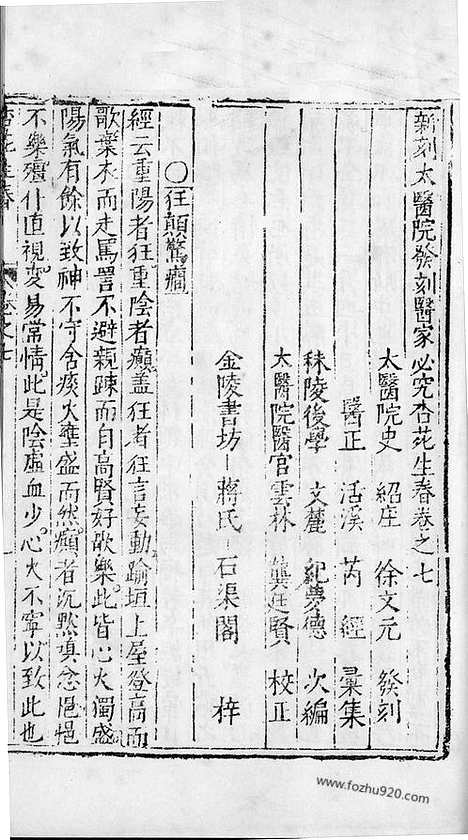 新刻太醫院發刻醫家必究杏花生春卷之七
太醫院史 紹座 徐文元 發刻
醫正 活溪 芮經 彙集
秣陵後學 文麓 紀夢德 次編
太醫院醫官雲林 龔廷賢 校正
金陵書坊 蔣氏 石渠閣 梓
○狂顛驚癎
經云重陽者狂重陰者癲蓋狂者狂言妄動踰垣上屋登高而
歌棄衣而走罵詈不避親疎而自高賢好歌樂此皆心火獨盛
陽氣有餘以致神不守舍痰火壅盛而然癲者沉默嗔忿悒悒
不樂殭仆直視変易常情此是陰虛血少心火不寧以致此也
杏花生春 卷之七
www.fozhu920.com